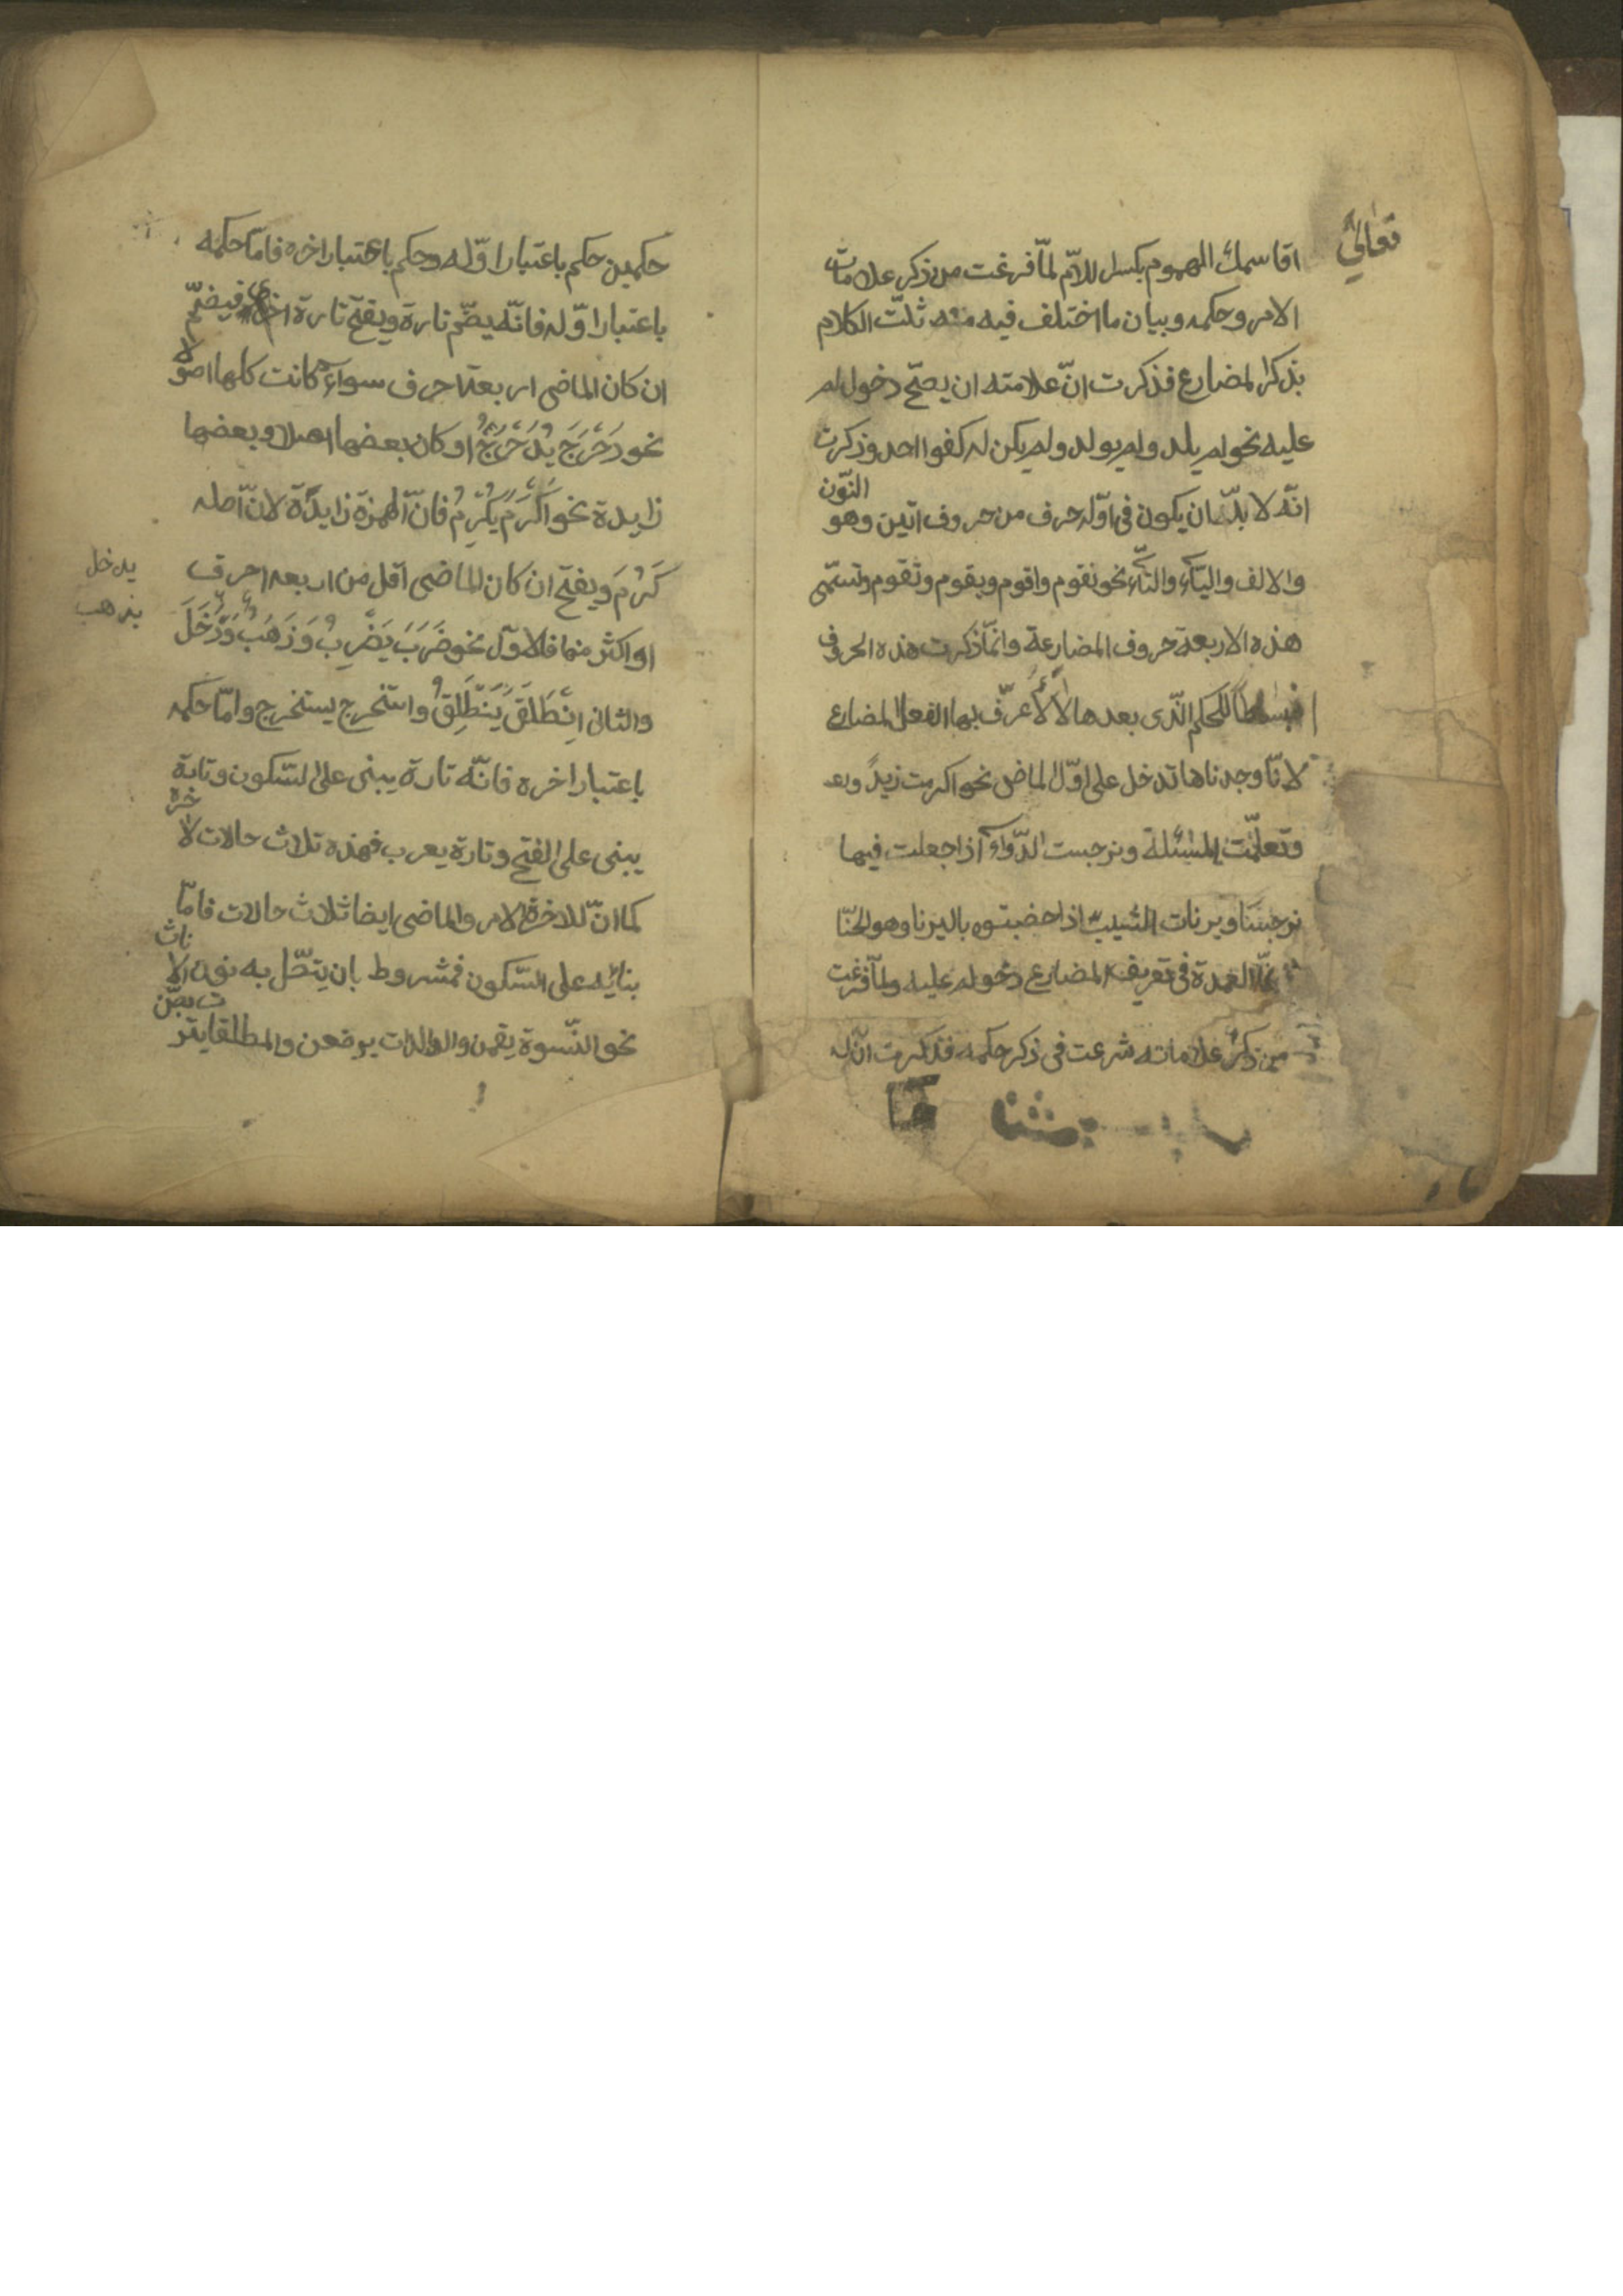 تعالي
اقاسمك الهموم بكسر اللام لمّا فرغت من ذكر علامات
الامر وحكمه وبيان ما اختلف فيه منه ثلّت الكلام
بذكر المضارع فذكرت انّ علامته ان يصحّ دخول لم
عليه نحو لم يلد ولم يولد ولم يكن له كفوا احد وذكرت
انّه لا بدّ ان يكون فى اوّله حرف من حروف اتين وهو النّون
والالف والياء والتاء نحو نقوم واقوم ويقوم وتقوم وتسمّى
هذه الاربعة حروف المضارعة وانمّا ذكرت هذه الحروف
للحكم الّذى بعدها لا لاعرّف بها الفعل المضارع
لانّا وجدناها تدخل على اوّل الماضى نحو اكرمت زيدً
وتعلّمت المسئلة ونرجست الدّواء اذا جعلت فيها
نرجسًا ويرنات الشيب اذا خضبته باليرنا وهو الحنّا
العمدة فى تعريف المضارع دخول لم عليه ولمّا فرغت
من ذكر علاماته شرعت فى ذكر حكمه فذكرت انّ له
حكمين حكم باعتبار اوّله وحكم باعتبار اخره فامّا حكمه
باعتبار اوّله فانّه يضّم تارة ويفتح تارة اخرى فيضمّ
ان كان الماضى اربعة احرف سواء كانت كلها اصولا
نحو دَحْرَجَ يُدَحْرِجُ او كان بعضها اصلا وبعضها
زايدة نحو اَكْرَمَ يُكْرِمُ فانّ الهمزة زايدة لانّ اصله
كَرُمَ ويفتح ان كان الماضى اقل من اربعه احرف
يدخل
يذهب
او اكثر منها فالاوّل نحو ضَرَبَ يَضْرِبُ وَذَهَبُ وَدَخَلَ
والثانى اِنْطَلَقَ يَنْطَلِقُ واستخرج يستخرج وامّا حكمه
باعتبار اخره فانّه تارة يبنى على السّكون وتارة
يبنى على الفتح وتارة يعرب فهذه ثلاث حالات لاخره
كما انّ للاخرة الامر والماضى ايضا ثلاث حالات فامّا
بنائه على السّكون فمشروط بان يتصّل به نون الاناث
نحو النّسوة يقمن والوالدات يرضعن والمطلقات يتربصّن